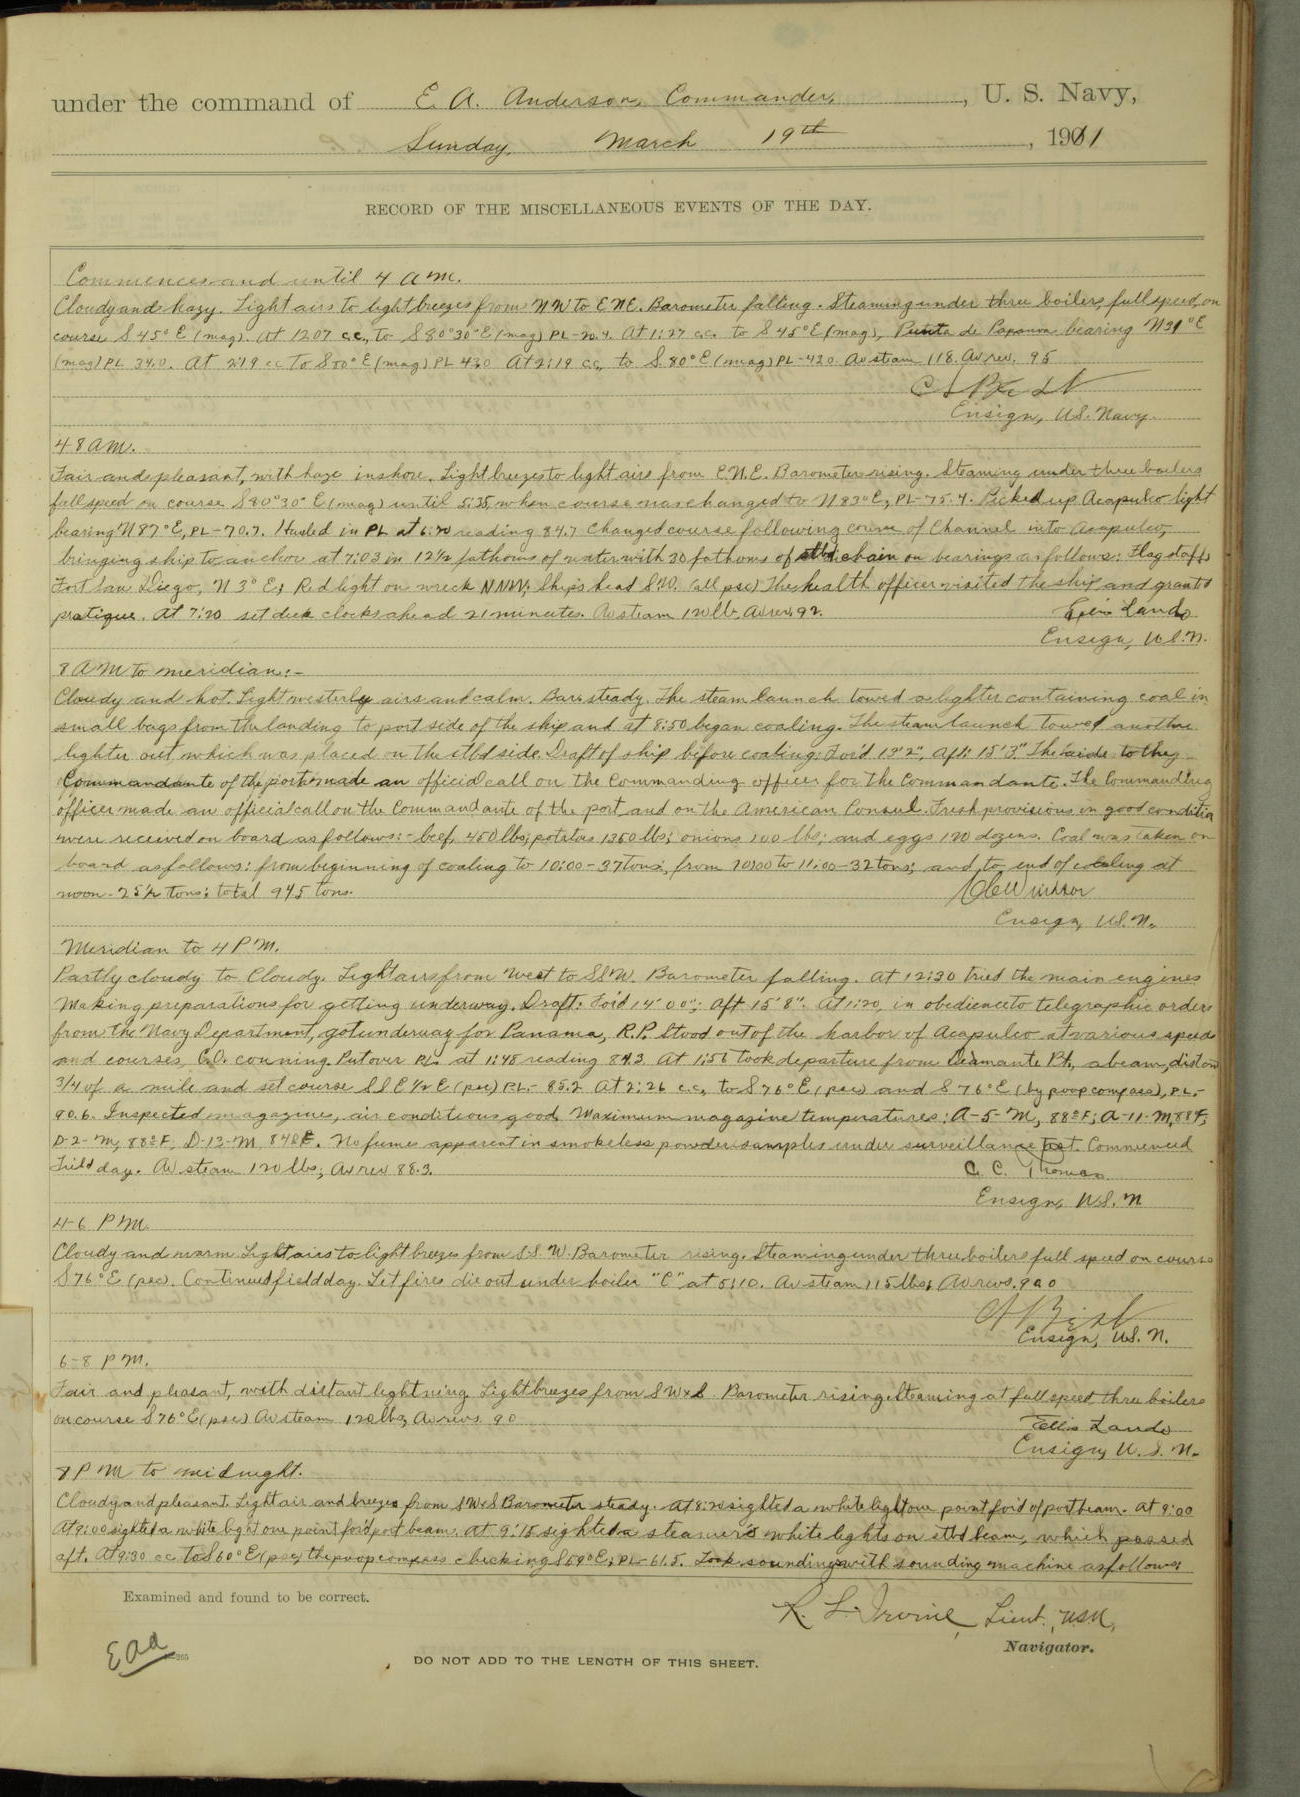 under the command of E. A. Anderson, Commander, , U. S. Navy,
Sunday, March 19th , 1911
RECORD OF THE MISCELLANEOUS EVENTS OF THE DAY.
Commences and until 4 A.M.
Cloudy and hazy. Light airs to light breezes from NW to ENE. Barometer falling. Steaming under three boilers, full speed, on
course S 45° E (mag). At 12:07 c.c., to S 80° 30' E (mag) PL-20.4. At 1:27 c.c. to S 45° E (mag), Punta de Papanoa bearing N 31° E
(mag) PL 34.0. At 2:19 cc to S 80° E (mag) PL 42.0 At 2:19 c.c., to S. 80° E (mag) PL-42.0. Av steam 118. Av rev. 95
Ensign, U.S. Navy.
4-8 A.M.
Fair and pleasant, with haze inshore. Light breezes to light airs from E.N.E. Barometer rising. Steaming under three boilers
full speed on course S 80° 30' E (mag) until 5:35, when course was changed to N 83° E, PL-75.4. Picked up Acapulco light
bearing N 87° E, PL-70.7. Hauled in PL at 6:20 reading 84.7 Changed course following course of Channel into Acapulco,
bringing ship to anchor at 7:03 in 12½ fathoms of water with 30 fathoms of stbd chain on bearings as follows: Flagstaff,
Fort San Diego, N 3° E; Red light on wreck NNW; Ship's head S.W. (all psc) The health officer visited the ship and granted
pratique. At 7:20 set deck clocks ahead 21 minutes. Av steam 120 lb. Av rev. 92.
Lando
Ensign, U.S.N.
8 A M to meridian:-
Cloudy and hot. Light westerly airs and calm. Bar. steady. The steam launch towed a lighter containing coal in
small bags from the landing to port side of the ship and at 8:50 began coaling. The steam launch towed another
lighter out which was placed on the stbd side. Draft of ship before coaling: For'd 13' 2", Aft: 15' 3". The aide to the
Commandante of the port made an official call on the Commanding officer for the Commandante. The Commanding
officer made an official call on the Commandante of the port and on the American Consul. Fresh provisions in good condition
were received on board as follows:- beef, 450 lbs; potatoes 1350 lbs; onions 100 lbs; and eggs 120 dozens. Coal was taken on
board as follows: from beginning of coaling to 10:00-37 tons, from 10:00 to 11:00-32 tons; and to end of coaling at
noon-25½ tons; total 94.5 tons.
Ensign, U.S.N.
Meridian to 4 P M.
Partly cloudy to Cloudy. Light airs from West to SSW. Barometer falling. At 12:30 tried the main engines
Making preparations for getting underway. Draft: For'd 14' 00"; Aft 15' 8". At 1:20, in obedience to telegraphic orders
from the Navy Department, got underway for Panama, R.P. Stood out of the harbor of Acapulco at various speeds
and courses, C.O. conning. Put over P.L. at 1:48 reading 84.3 At 1:56 took departure from Diamante Pt., abeam, distant
3/4 of a mile and set course S S E ½ E (psc) PL.- 85.2 At 2:26 c.c., to S 76° E (psc) and S 76° E (by poop compass), PL.-
90.6. Inspected magazines, air conditions good. Maximum magazine temperatures: A-5-M, 88° F; A-11-M, 88° F;
D-2-M, 88° F, D-13-M 84° F. No fumes apparent in smokeless powder samples under surveillance test. Commenced
Field day. Av steam 120 lbs; Av rev 88.3.
C. Thomas
Ensign, U.S.N
4-6 P M.
Cloudy and warm. Light airs to light breezes from S.S.W. Barometer rising. Steaming under three boilers full speed on course
S 76° E (psc). Continued field day. Let fires die out under boiler "C" at 5:10. Av steam 115 lbs; Av revs. 90.0
Ensign, U.S.N.
6-8 P M.
Fair and pleasant, with distant lightning. Light breezes from SWxS. Barometer rising. Steaming at full speed, three boilers
on course S 76° E (psc) Av steam 120 lbs, Av revs. 90
Ellis Lando
Ensign, U.S.N.
8 P M to midnight.
Cloudy and pleasant. Light air and breezes from SWxS Barometer steady. At 8:20 sighted a white light one point for'd of port beam. At 9:00
At 9:00 sighted a white light one point for'd port beam. At 9:15 sighted a steamer's white lights on stbd beam, which passed
aft. At 9:30 cc to S 60° E (psc) the poop compass checking S 59° E; PL-61.5. Took soundings with sounding machine as follows:
Examined and found to be correct.
R. L. Irvine, Lieut., U.S.N,
Navigator.
EAA
DO NOT ADD TO THE LENGTH OF THIS SHEET.